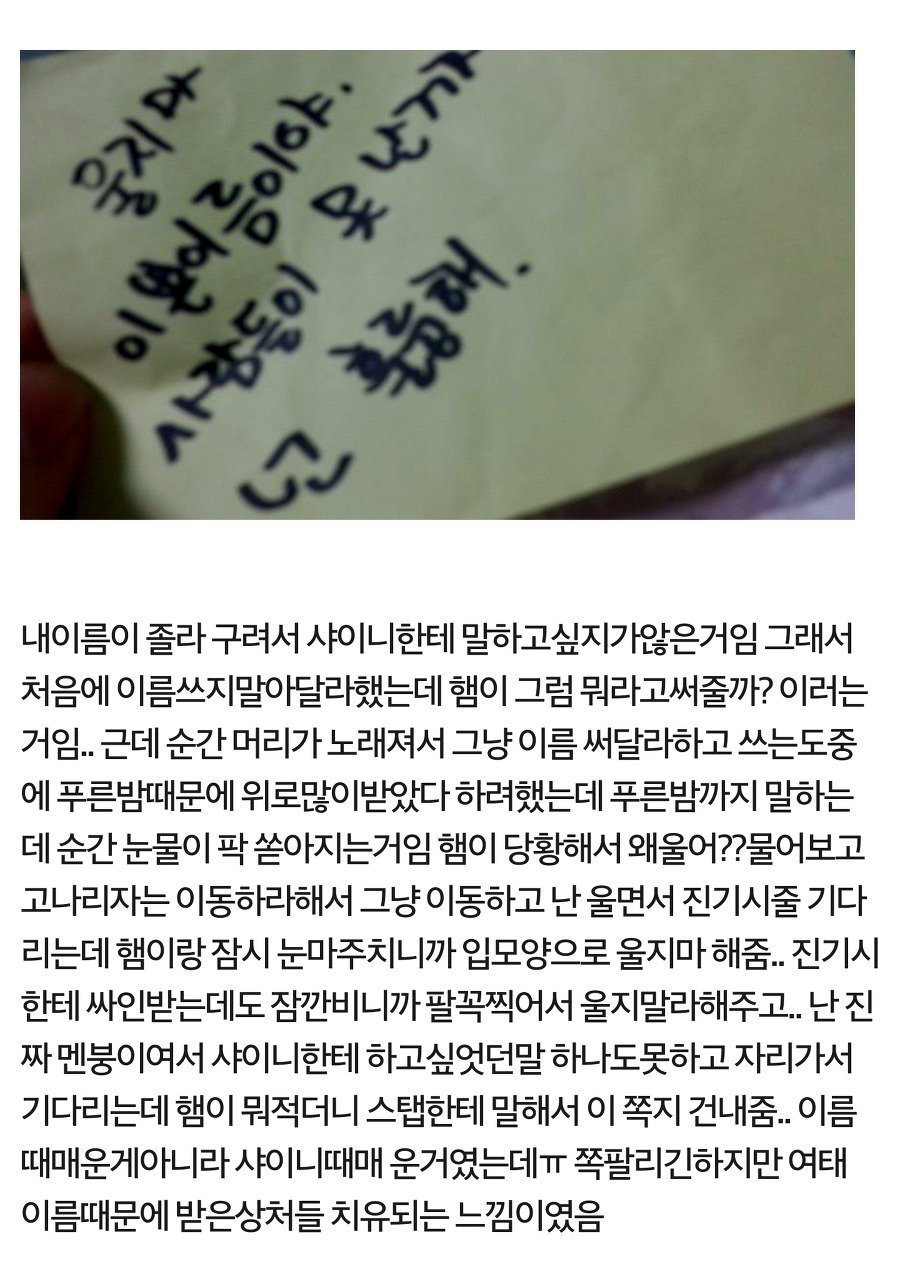 울지마
이쁜이름이야.
사람들이 못난거야
넌 훌륭해.
내이름이 졸라 구려서 샤이니한테 말하고싶지가않은거임 그래서
처음에 이름쓰지말아달라했는데 햄이 그럼 뭐라고써줄까? 이러는
거임.. 근데 순간 머리가 노래져서 그냥 이름 써달라하고 쓰는도중
에 푸른밤때문에 위로많이받았다 하려했는데 푸른밤까지 말하는
데 순간 눈물이 팍 쏟아지는거임 햄이 당황해서 왜울어??물어보고
고나리자는 이동하라해서 그냥 이동하고 난 울면서 진기시줄 기다
리는데 햄이랑 잠시 눈마주치니까 입모양으로 울지마 해줌.. 진기시
한테 싸인받는데도 잠깐비니까 팔꼭찍어서 울지말라해주고.. 난 진
짜 멘붕이여서 샤이니한테 하고싶엇던말 하나도못하고 자리가서
기다리는데 햄이 뭐적더니 스탭한테 말해서 이 쪽지 건내줌.. 이름
때매운게아니라 샤이니때매 운거였는데ㅠ 쪽팔리긴하지만 여태
이름때문에 받은상처들 치유되는 느낌이였음